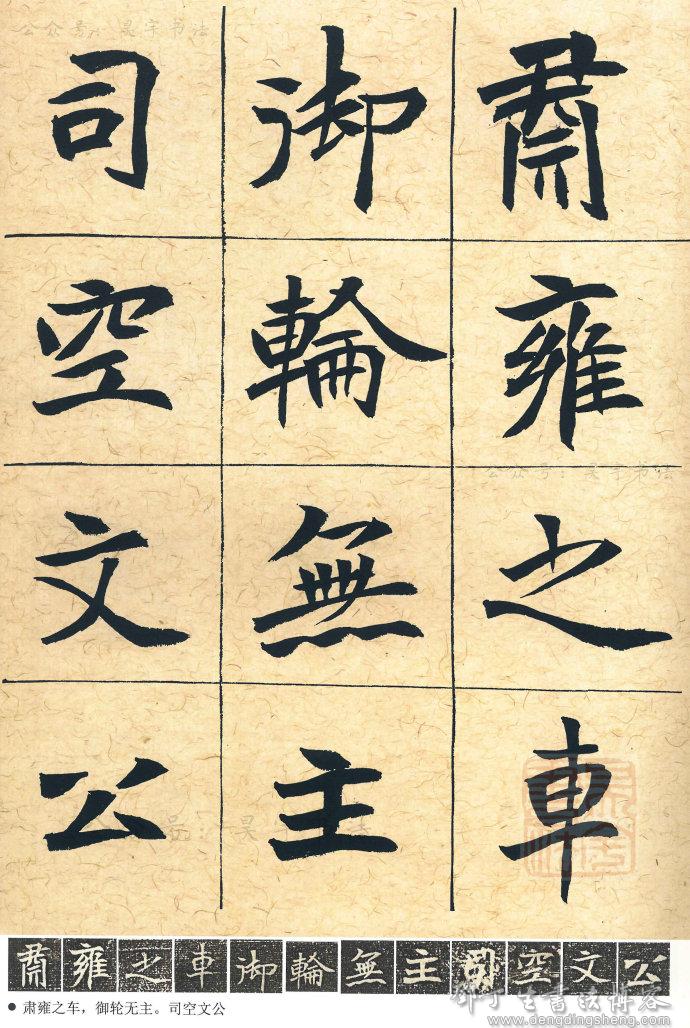 公众号：昊宇书法
肅雍之車
御輪無主
司空文公
公众号：昊宇书法
号：昊宇书法
肅雍之車御輪無主司空文公
● 肃雍之车，御轮无主。司空文公
邓丁生书法博客
www.dengdingsheng.com